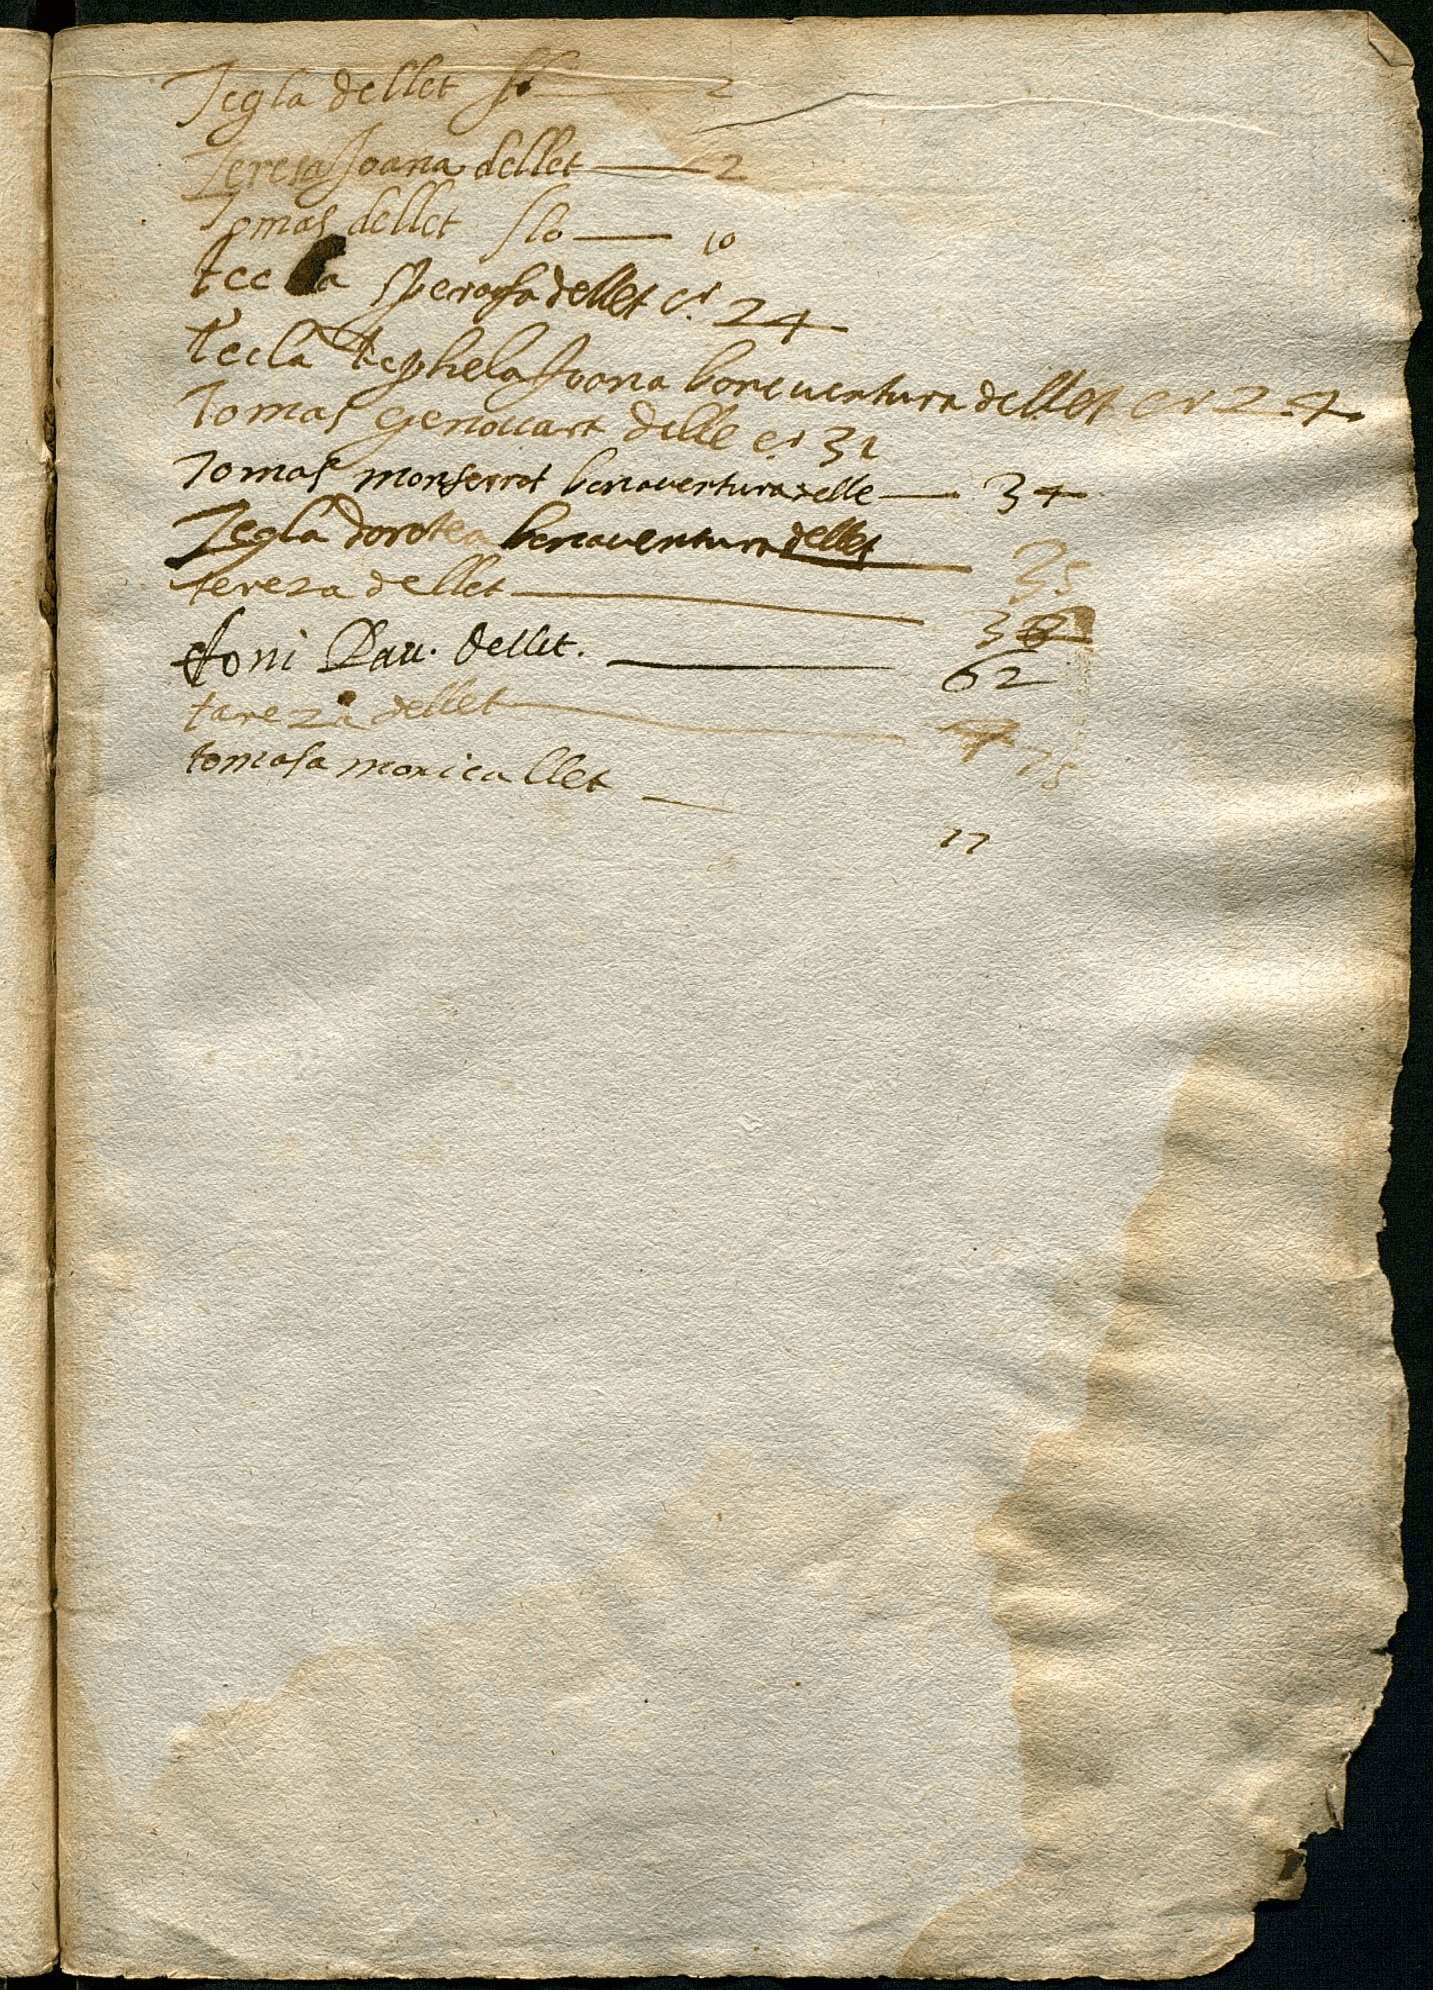 Tegla dellet fl 2
Teresa Joana dellet 2
Tomas dellet flo 10
tecla dellet 24
tecla Joana boneventura dellet 24
Tomas genouart delle 31
Tomas monserrat bonaventura delle 34
Tegla dorotea bonaventura dellet 35
tereza dellet
Toni Pau. dellet. 62
tareza dellet 75
tomasa monica llet
77